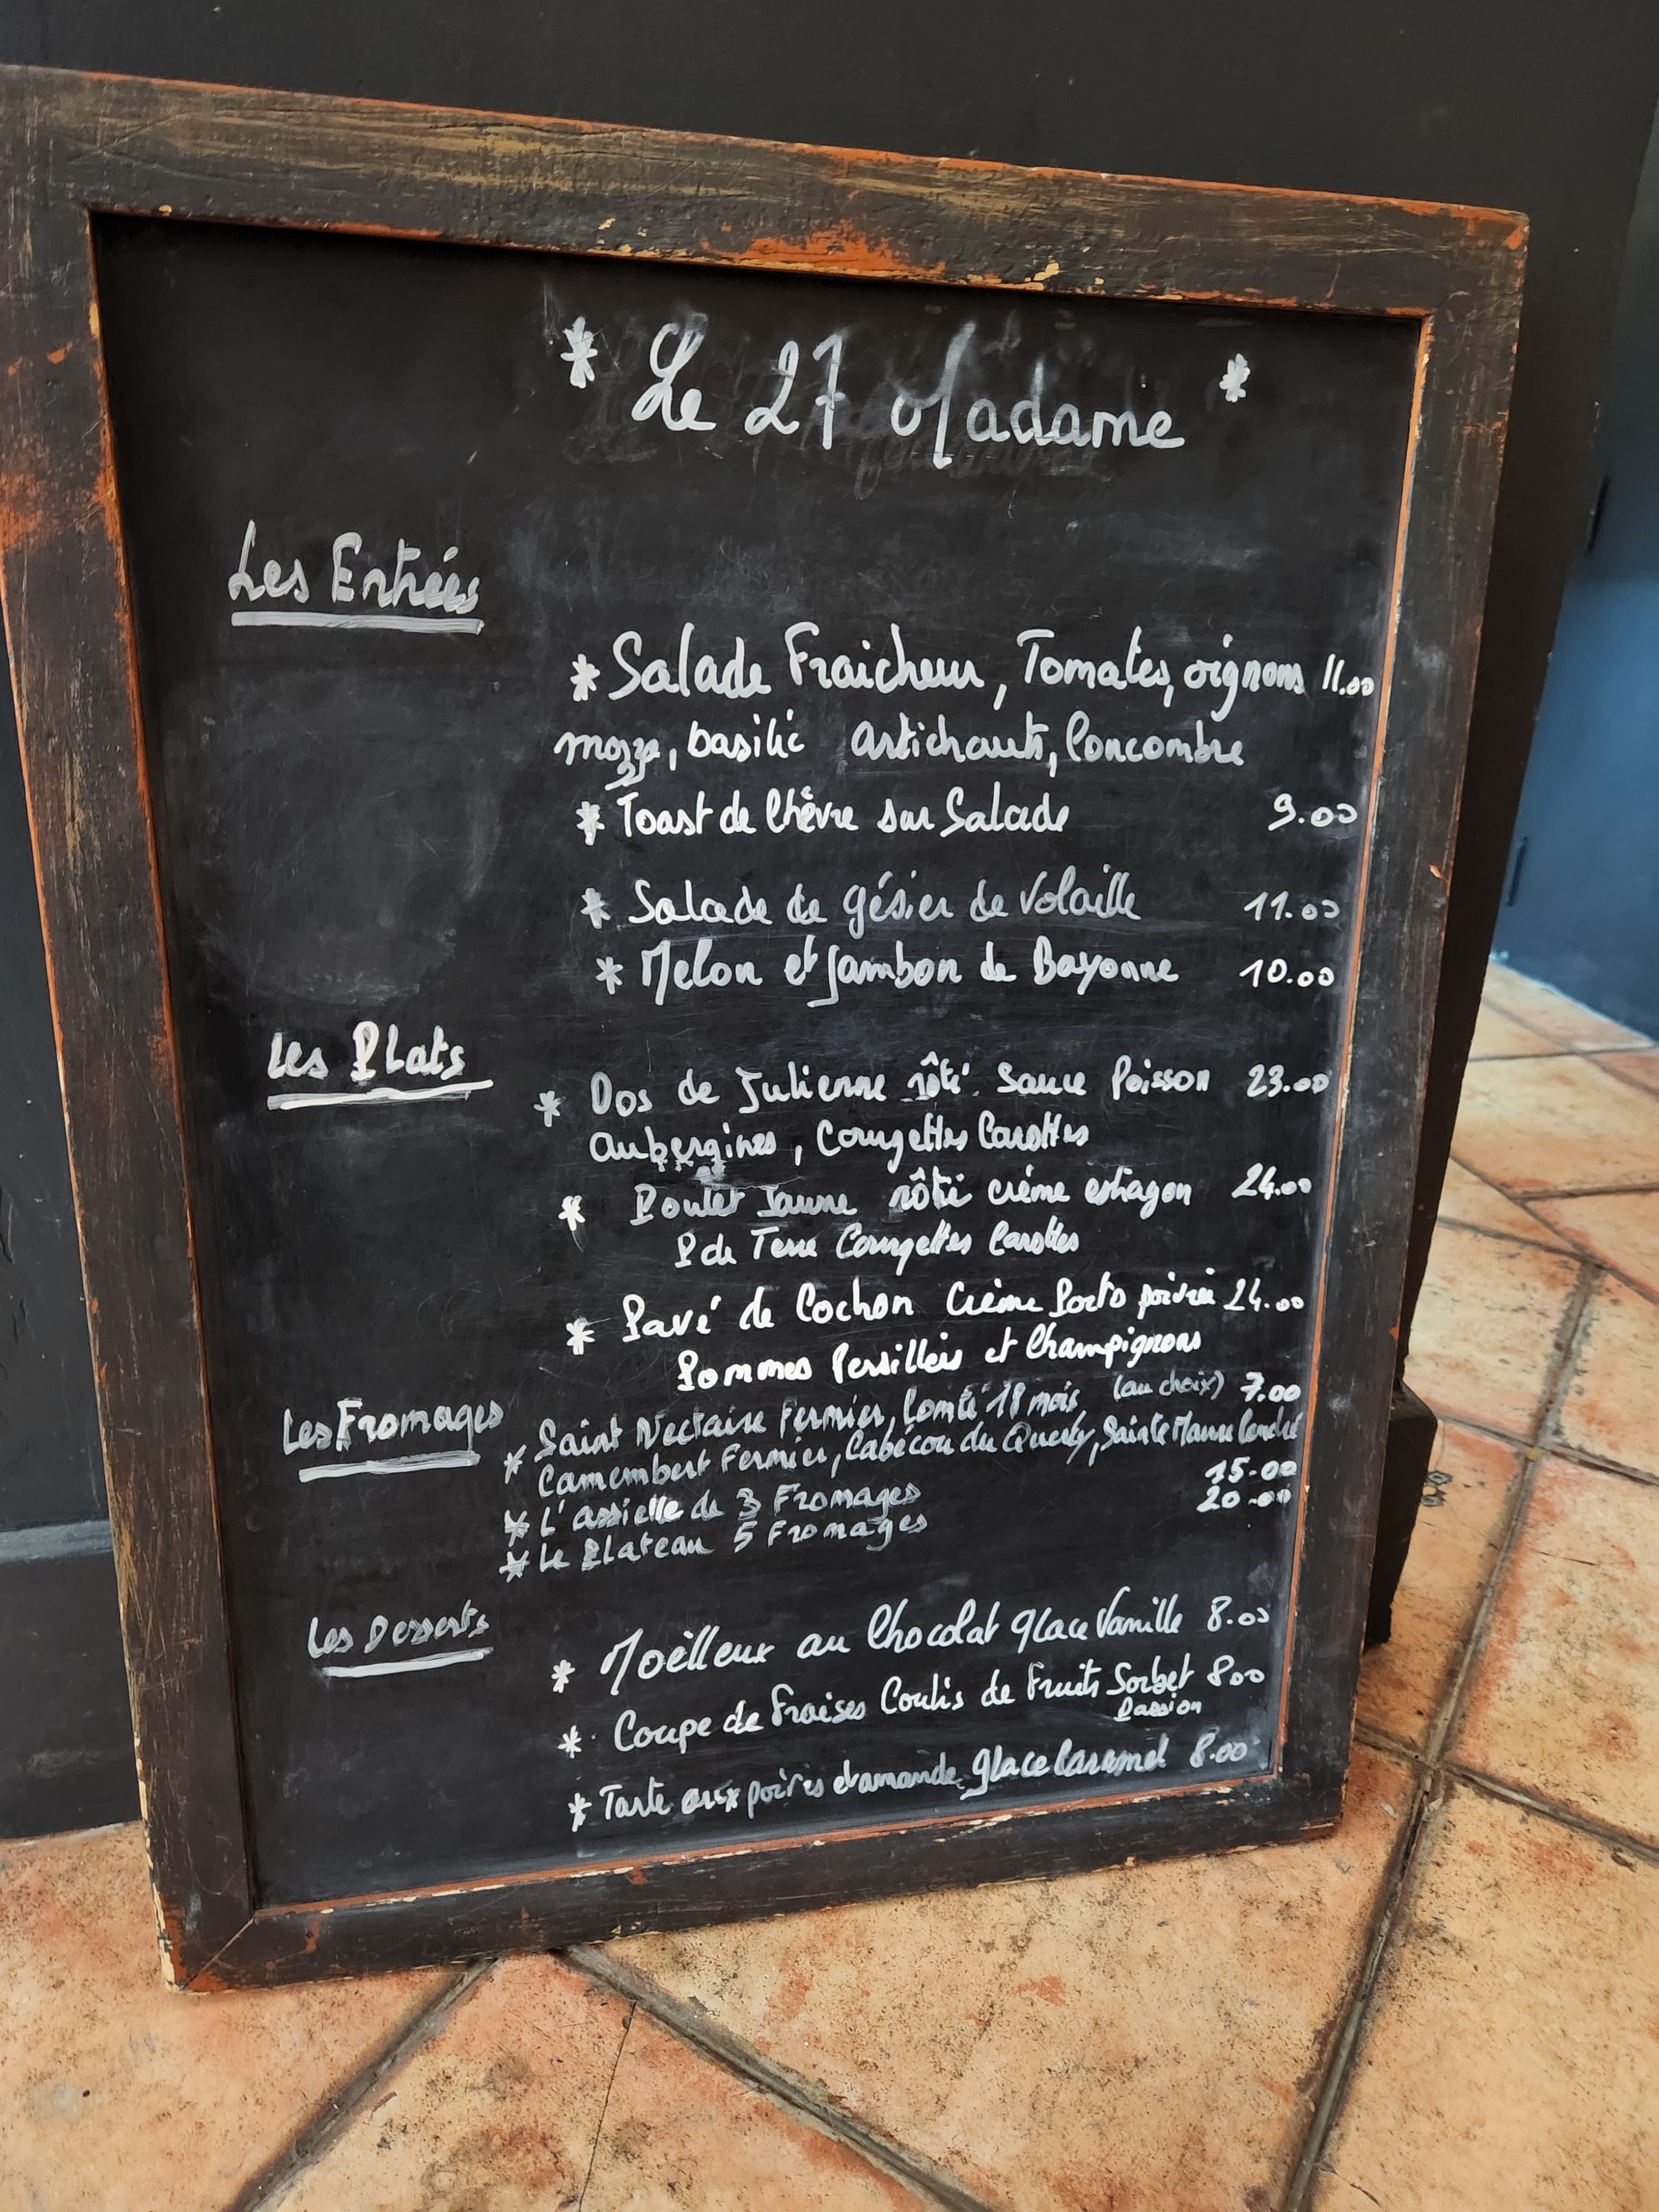 * Le 27 Madame *
Les Entrées
* Salade Fraicheur, Tomates, oignons 11.00
mozza, basilic artichauts, Concombre
* Toast de Chèvre sur Salade 9.00
* Salade de gésier de Volaille 11.00
* Melon et Jambon de Bayonne 10.00
Les Plats
* Dos de Julienne rôti. Sauce Poisson 23.00
Aubergines, Courgettes Carottes
* Poulet Jaune rôti crème estragon 24.00
P de Terre Courgettes Carottes
* Pavé de Cochon Crème Porto poivrée 24.00
Pommes Persillées et Champignons
Les Fromages
* Saint Nectaire Fermier, Comté 18 mois (au choix) 7.00
Camembert Fermier, Cabécou du Quercy, Sainte Maure Cendré
* L'assiette de 3 Fromages 15.00
* Le Plateau 5 Fromages 20.00
Les Desserts
* Moëlleux au Chocolat glace Vanille 8.00
* Coupe de Fraises Coulis de Fruits Sorbet 800
Passion
* Tarte aux poires d'amande glace Caramel 8.00